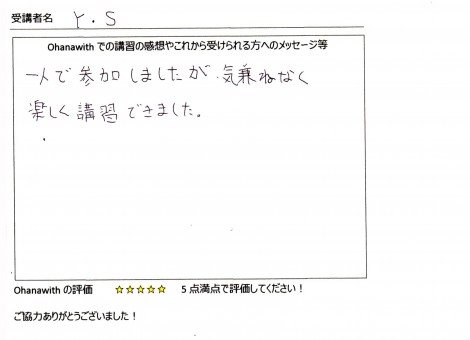 受講者名 Y.S
Ohanawith での講習の感想やこれから受けられる方へのメッセージ等
一人で参加しましたが気兼ねなく
楽しく講習できました。
Ohanawith の評価 ☆☆☆☆☆ 5 点満点で評価してください！
ご協力ありがとうございました！